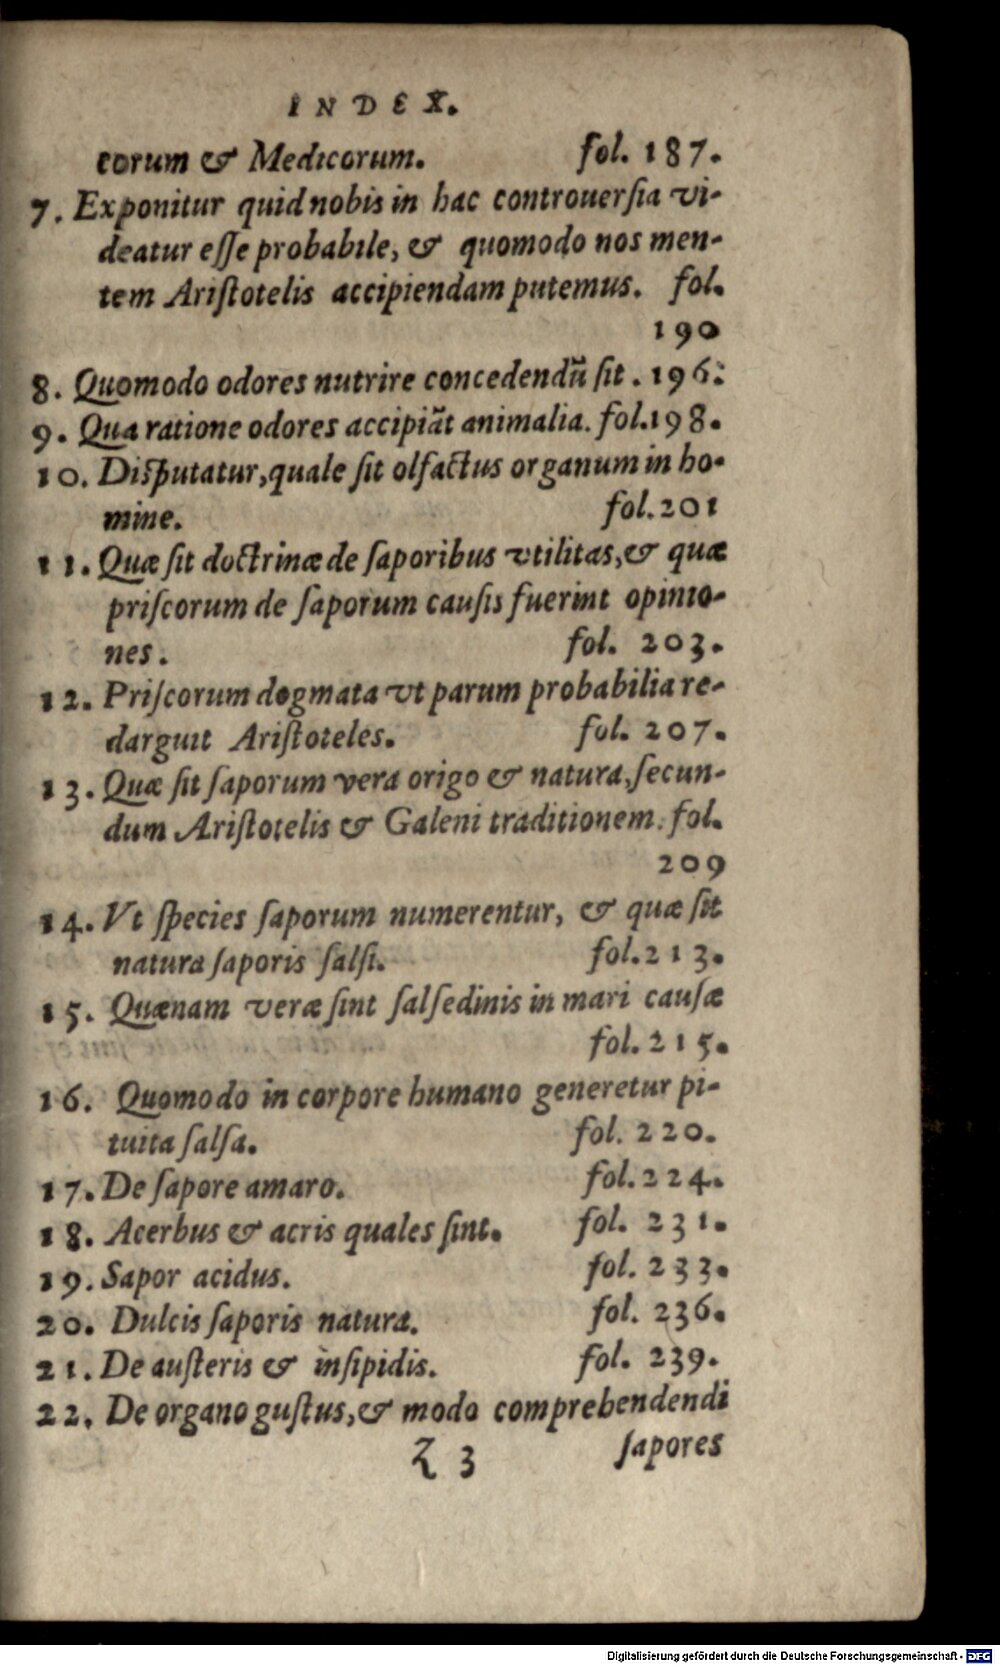 INDEX.
corum & Medicorum. fol. 187.
7. Exponitur quid nobis in hac controuerſia vi-
deatur eſſe probabile, & quomodo nos men-
tem Ariſtotelis accipiendam putemus. fol.
190
8. Quomodo odores nutrire concedendū ſit. 196.
9. Qua ratione odores accipiāt animalia. fol. 198.
10. Diſputatur, quale ſit olfactus organum in ho-
mine. fol. 201
11. Quæ ſit doctrinæ de ſaporibus vtilitas, & quæ
priſcorum de ſaporum cauſis fuerint opinio-
nes. fol. 203.
12. Priſcorum dogmata vt parum probabilia re-
darguit Ariſtoteles. fol. 207.
13. Quæ ſit ſaporum vera origo & natura, ſecun-
dum Ariſtotelis & Galeni traditionem. fol.
209
14. Vt ſpecies ſaporum numerentur, & quæ ſit
natura ſaporis ſalſi. fol. 213.
15. Quænam veræ ſint ſalſedinis in mari cauſæ
fol. 215.
16. Quomodo in corpore humano generetur pi-
tuita ſalſa. fol. 220.
17. De ſapore amaro. fol. 224.
18. Acerbus & acris quales ſint. fol. 231.
19. Sapor acidus. fol. 233.
20. Dulcis ſaporis natura. fol. 236.
21. De auſteris & inſipidis. fol. 239.
22. De organo guſtus, & modo comprehendendi
Z 3 ſapores
Digitalisierung gefördert durch die Deutsche Forschungsgemeinschaft - DFG